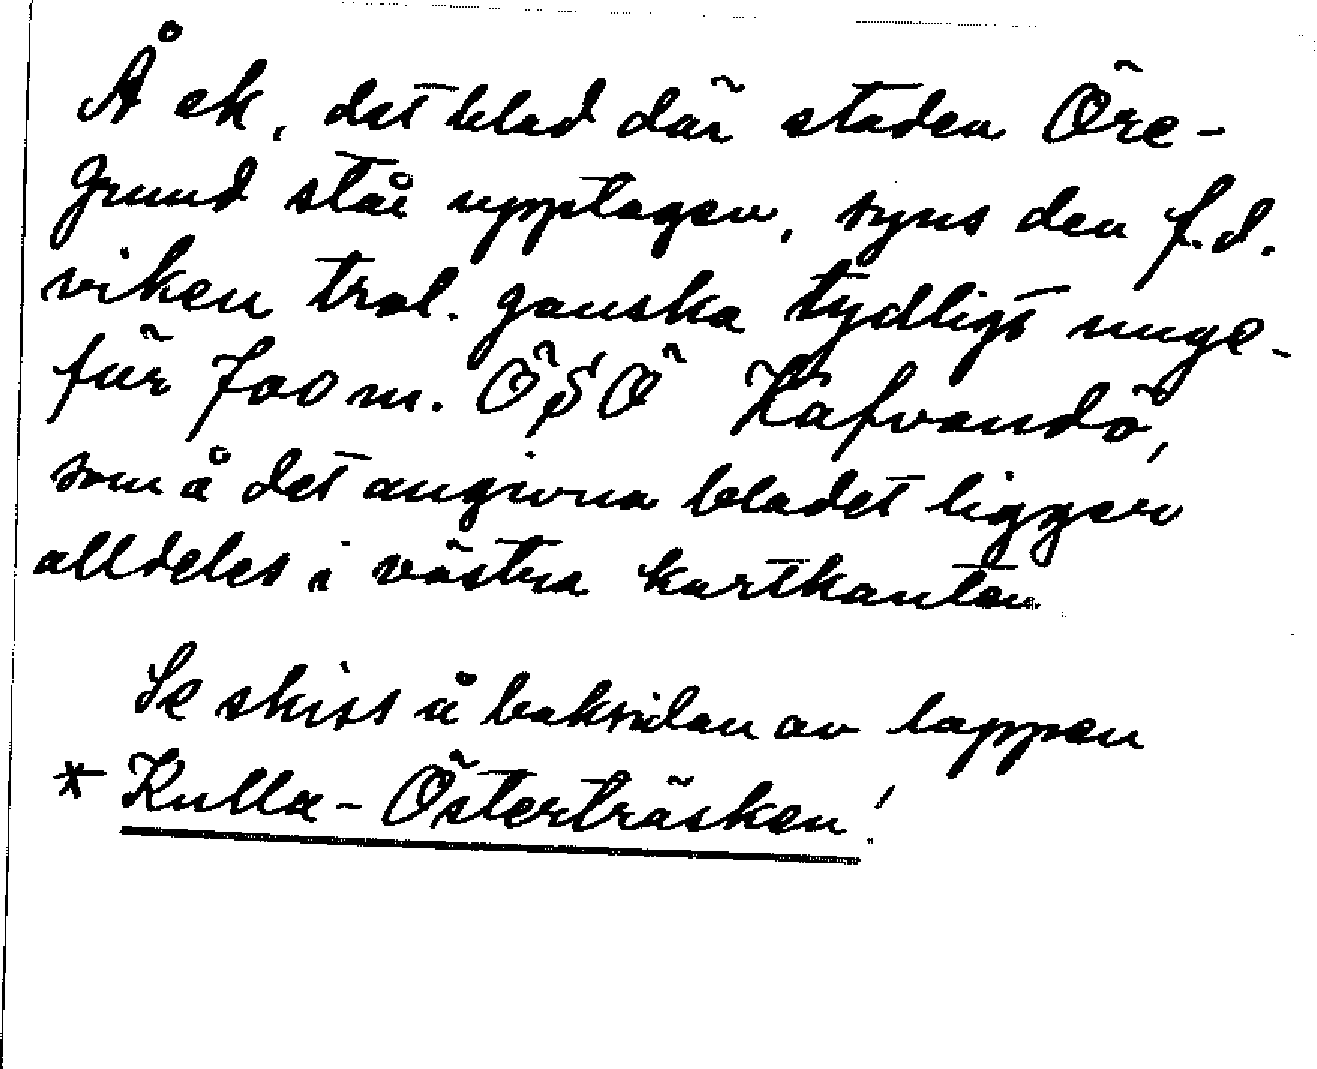 Å ek, det blad där staden Öre-
grund står upptagen, syns den f.d.
viken trol. ganska tydligt unge-
fär 700 m. ÖSÖ Kafvandö,
som å det angivna bladet ligger
alldeles i västra kartkanten
Se skiss å baksidan av lappen
* Kulla-Österträsken!